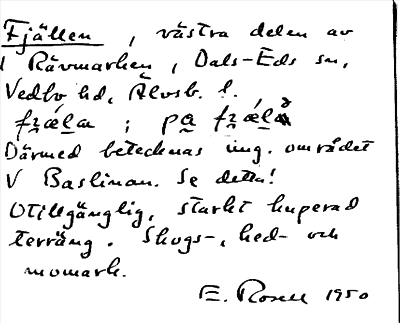 Fjällen, västra delen av
Rävmarken, Dals-Eds sn,
Vedbo hd, Älvsb. l.
Därmed betecknas ung. området
V Baslinan. Se detta!
Otillgänglig, starkt kuperad
terräng. Skogs-, hed- och
momark.
E. Rosell 1950